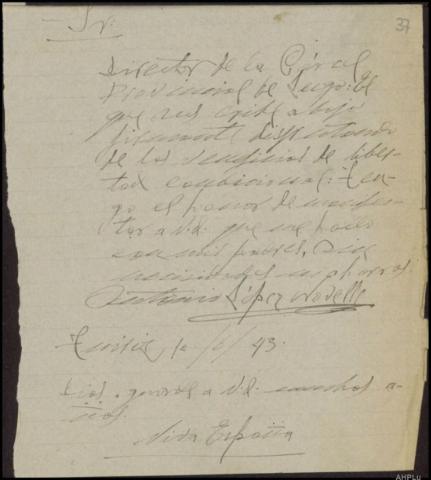 Sr.
37
Director de la Cárcel
Provincial de Lugo: El
que suscribe abajo
firmante disfrutando
de los veneficios de liber-
tad condicional: Ten-
go el honor de manifes-
tar a Vd. que me hallo
con mis padres, sin
Antonio López
43.
Dios guarde a Vd. muchos a-
ños.
Viva España
AHPLu